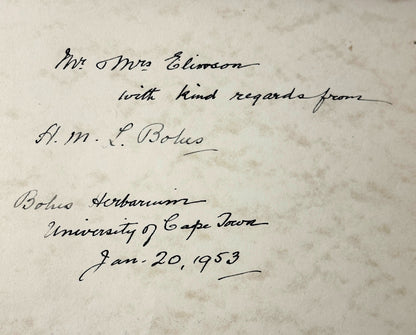 Mr. & Mrs Elinson
with kind regards from
H. M. L. Bolus
Bolus Herbarium
University of Cape Town
Jan. 20, 1953